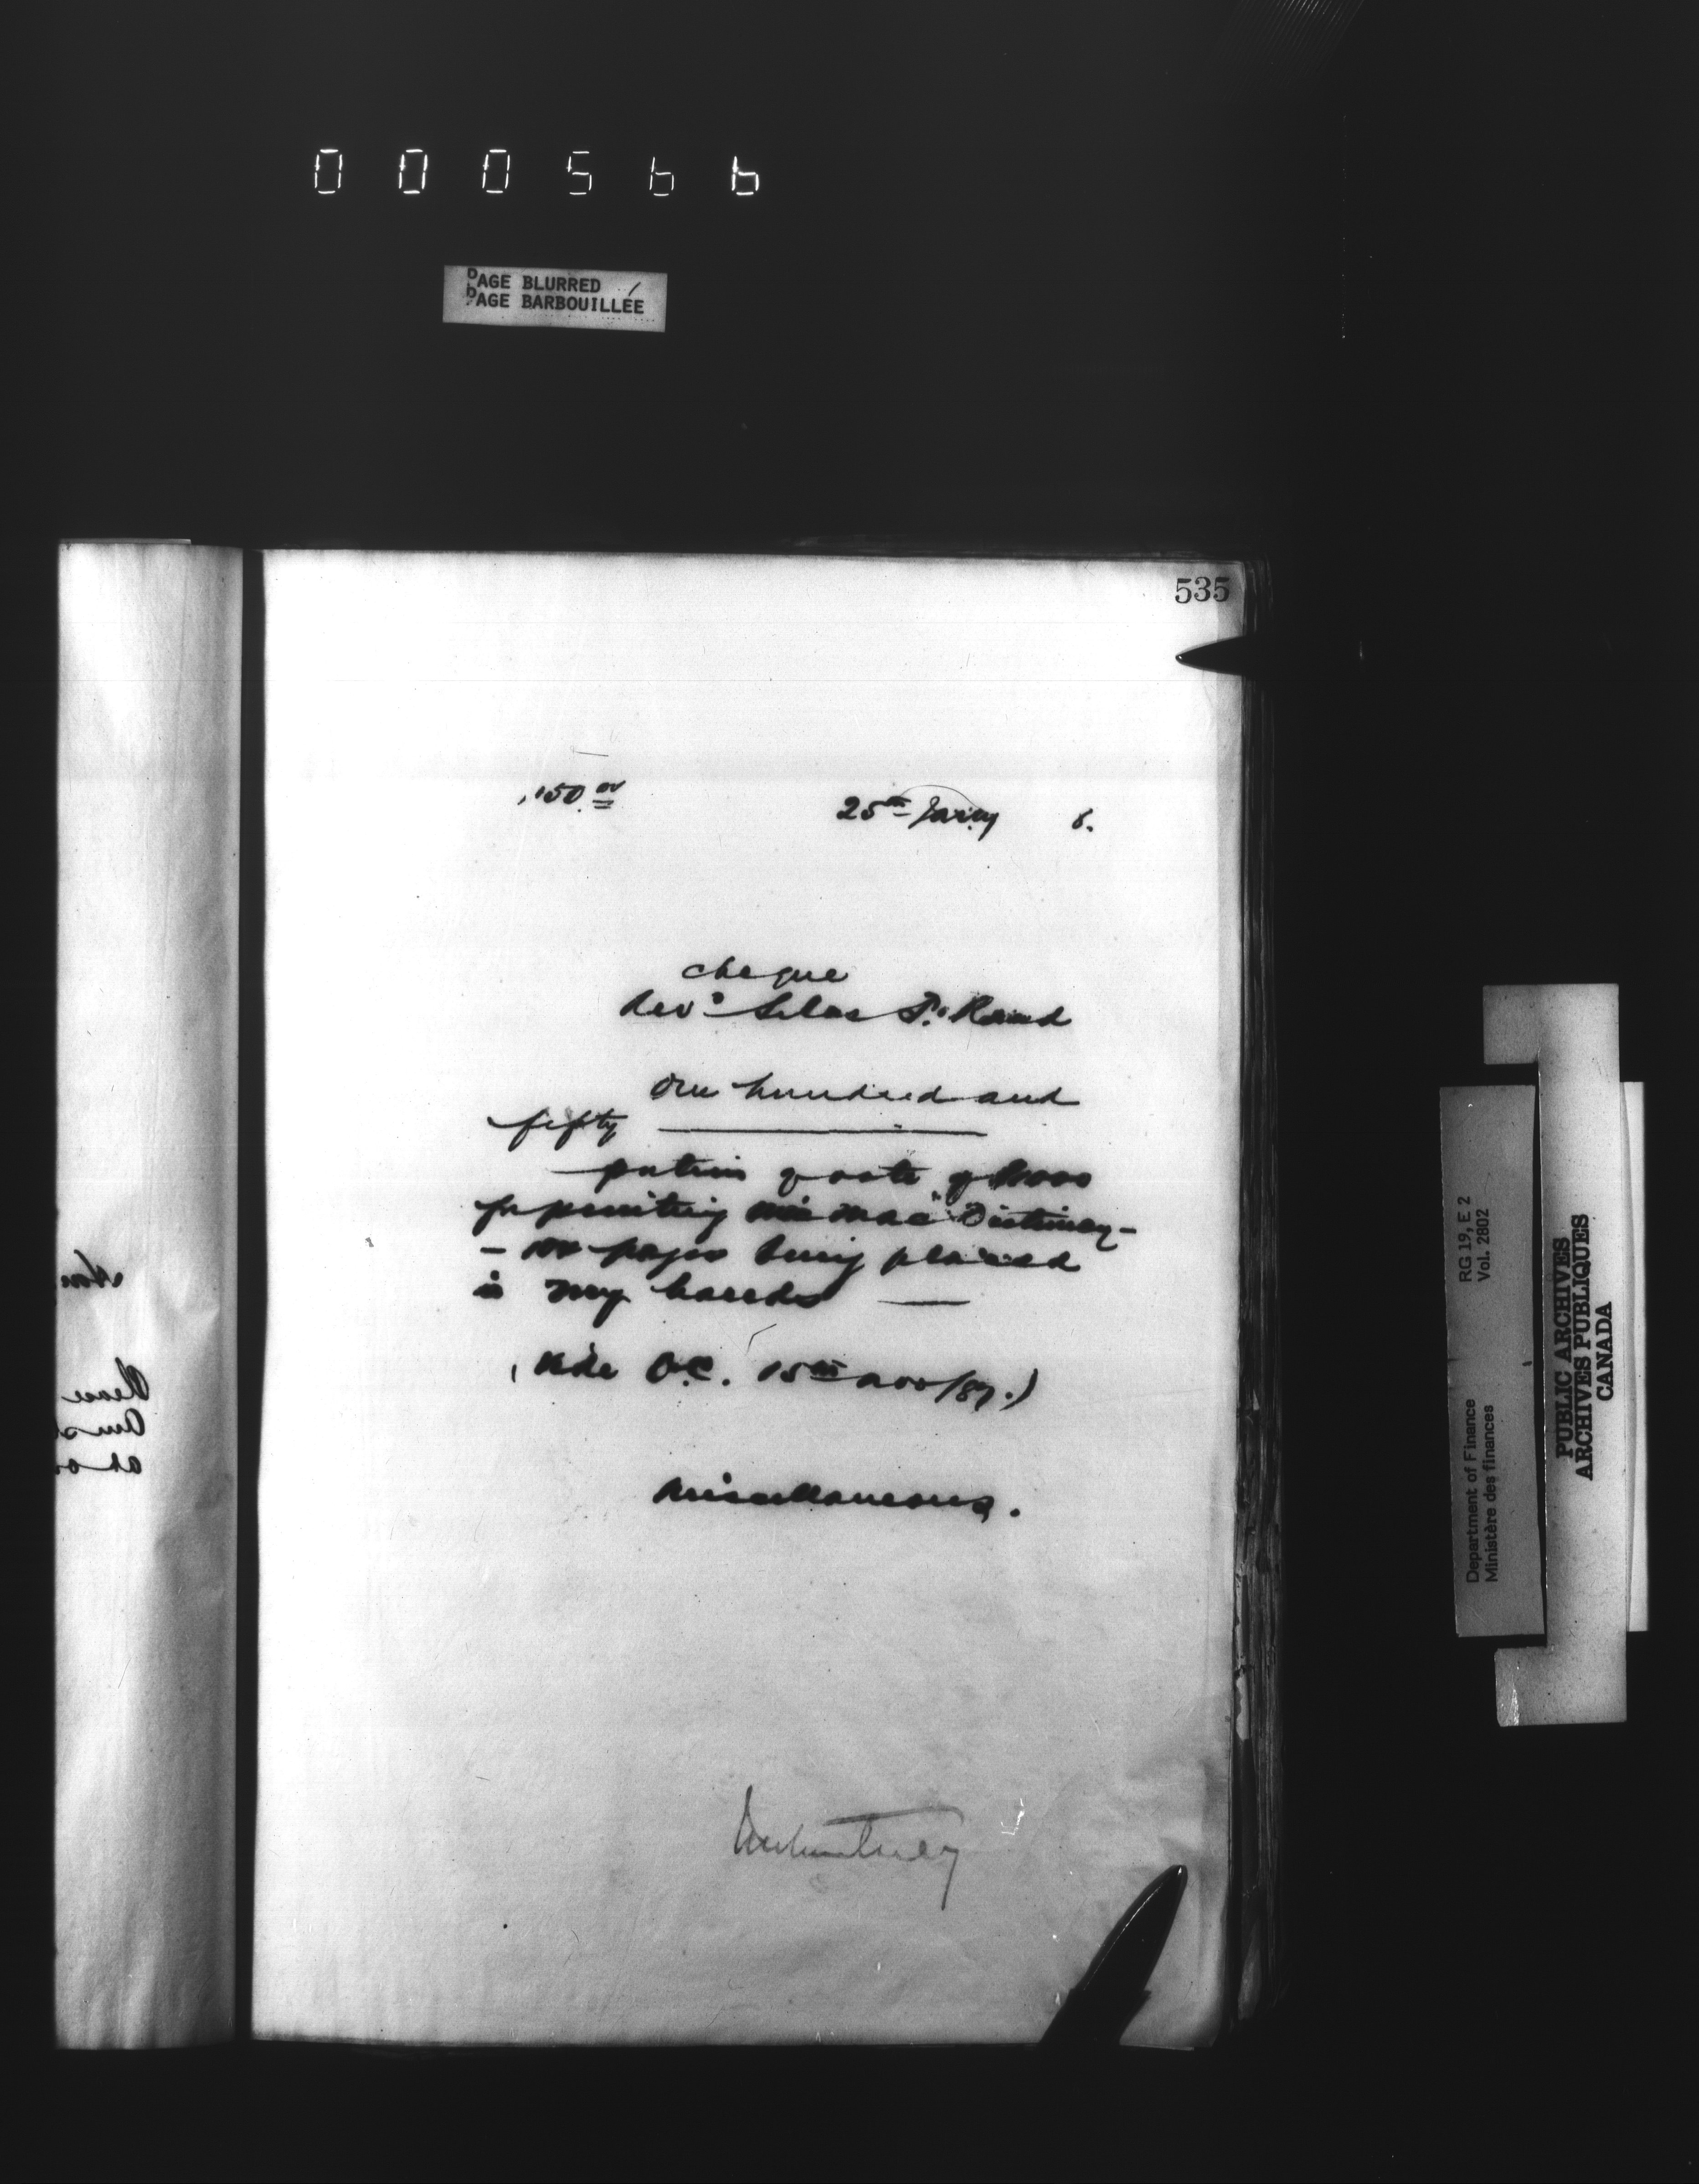 000566
PAGE BLURRED
PAGE BARBOUILLÉE
535
150.00
25th Jan'y 8.
cheque
Revd Silas T. Rand
One hundred and
fifty
portion of vote of $1000
for printing Micmac Dictionary -
- 100 pages being placed
in my hands
(Vide O.C. 15th Nov/87.)
Miscellaneous.
RG 19, E 2
Vol. 2802
Department of Finance
Ministère des finances
PUBLIC ARCHIVES
ARCHIVES PUBLIQUES
CANADA